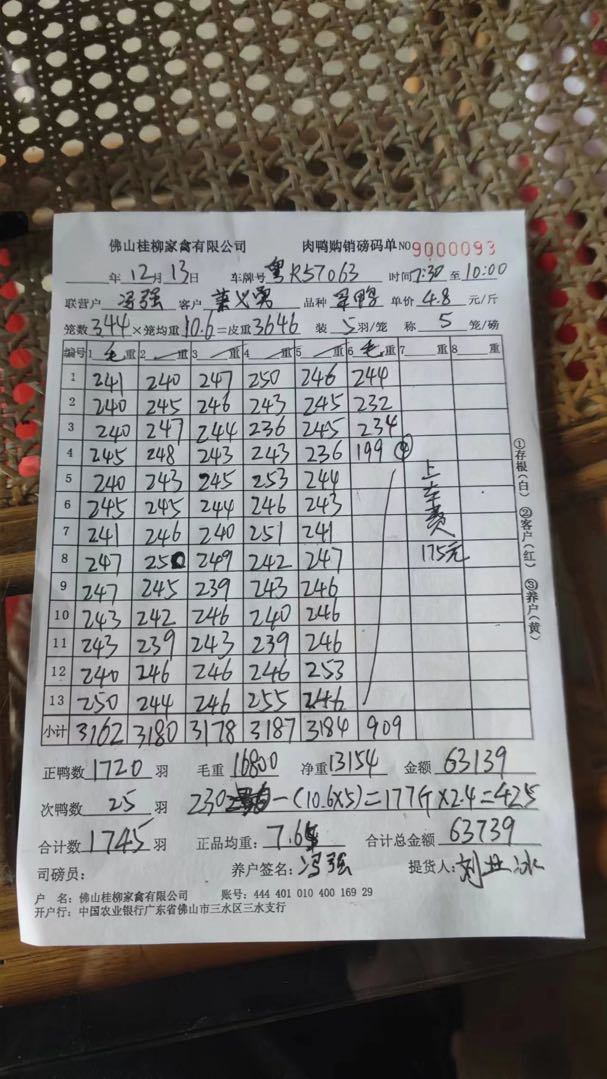 佛山桂柳家禽有限公司 肉鸭购销磅码单 NO 9000093
年 12 月 13 日 车牌号 粤R57063 时间 7:30 至 10:00
联营户 冯强 客户 品种 单价 4.8 元/斤
笼数 344 ×笼均重 10.6 =皮重 3646 装 5 羽/笼 称 5 笼/磅
编号 1 毛 重 2 重 3 重 4 重 5 重 6 毛 重 7 重 8 重
1 241 240 247 250 246 244
2 240 245 246 243 245 232
3 240 247 244 236 245 234
4 245 248 243 243 236 199 ④
5 240 243 245 253 244
6 245 245 244 246 243
7 241 246 240 251 241
8 247 250 249 242 247
9 247 245 239 243 246
10 243 242 246 240 246
11 243 239 243 239 246
12 240 246 246 246 253
13 250 244 246 255 246
上车费
175元
小计 3162 3180 3178 3187 3184 909
①存根(白) ②客户(红) ③养户(黄)
正鸭数 1720 羽 毛重 16800 净重 13154 金额 63139
次鸭数 25 羽 230 -(10.6×5)=177斤×2.4=425
合计数 1745 羽 正品均重: 7.65 合计总金额 63739
司磅员: 养户签名: 冯强 提货人:
户 名: 佛山桂柳家禽有限公司 账号: 444 401 010 400 169 29
开户行: 中国农业银行广东省佛山市三水区三水支行